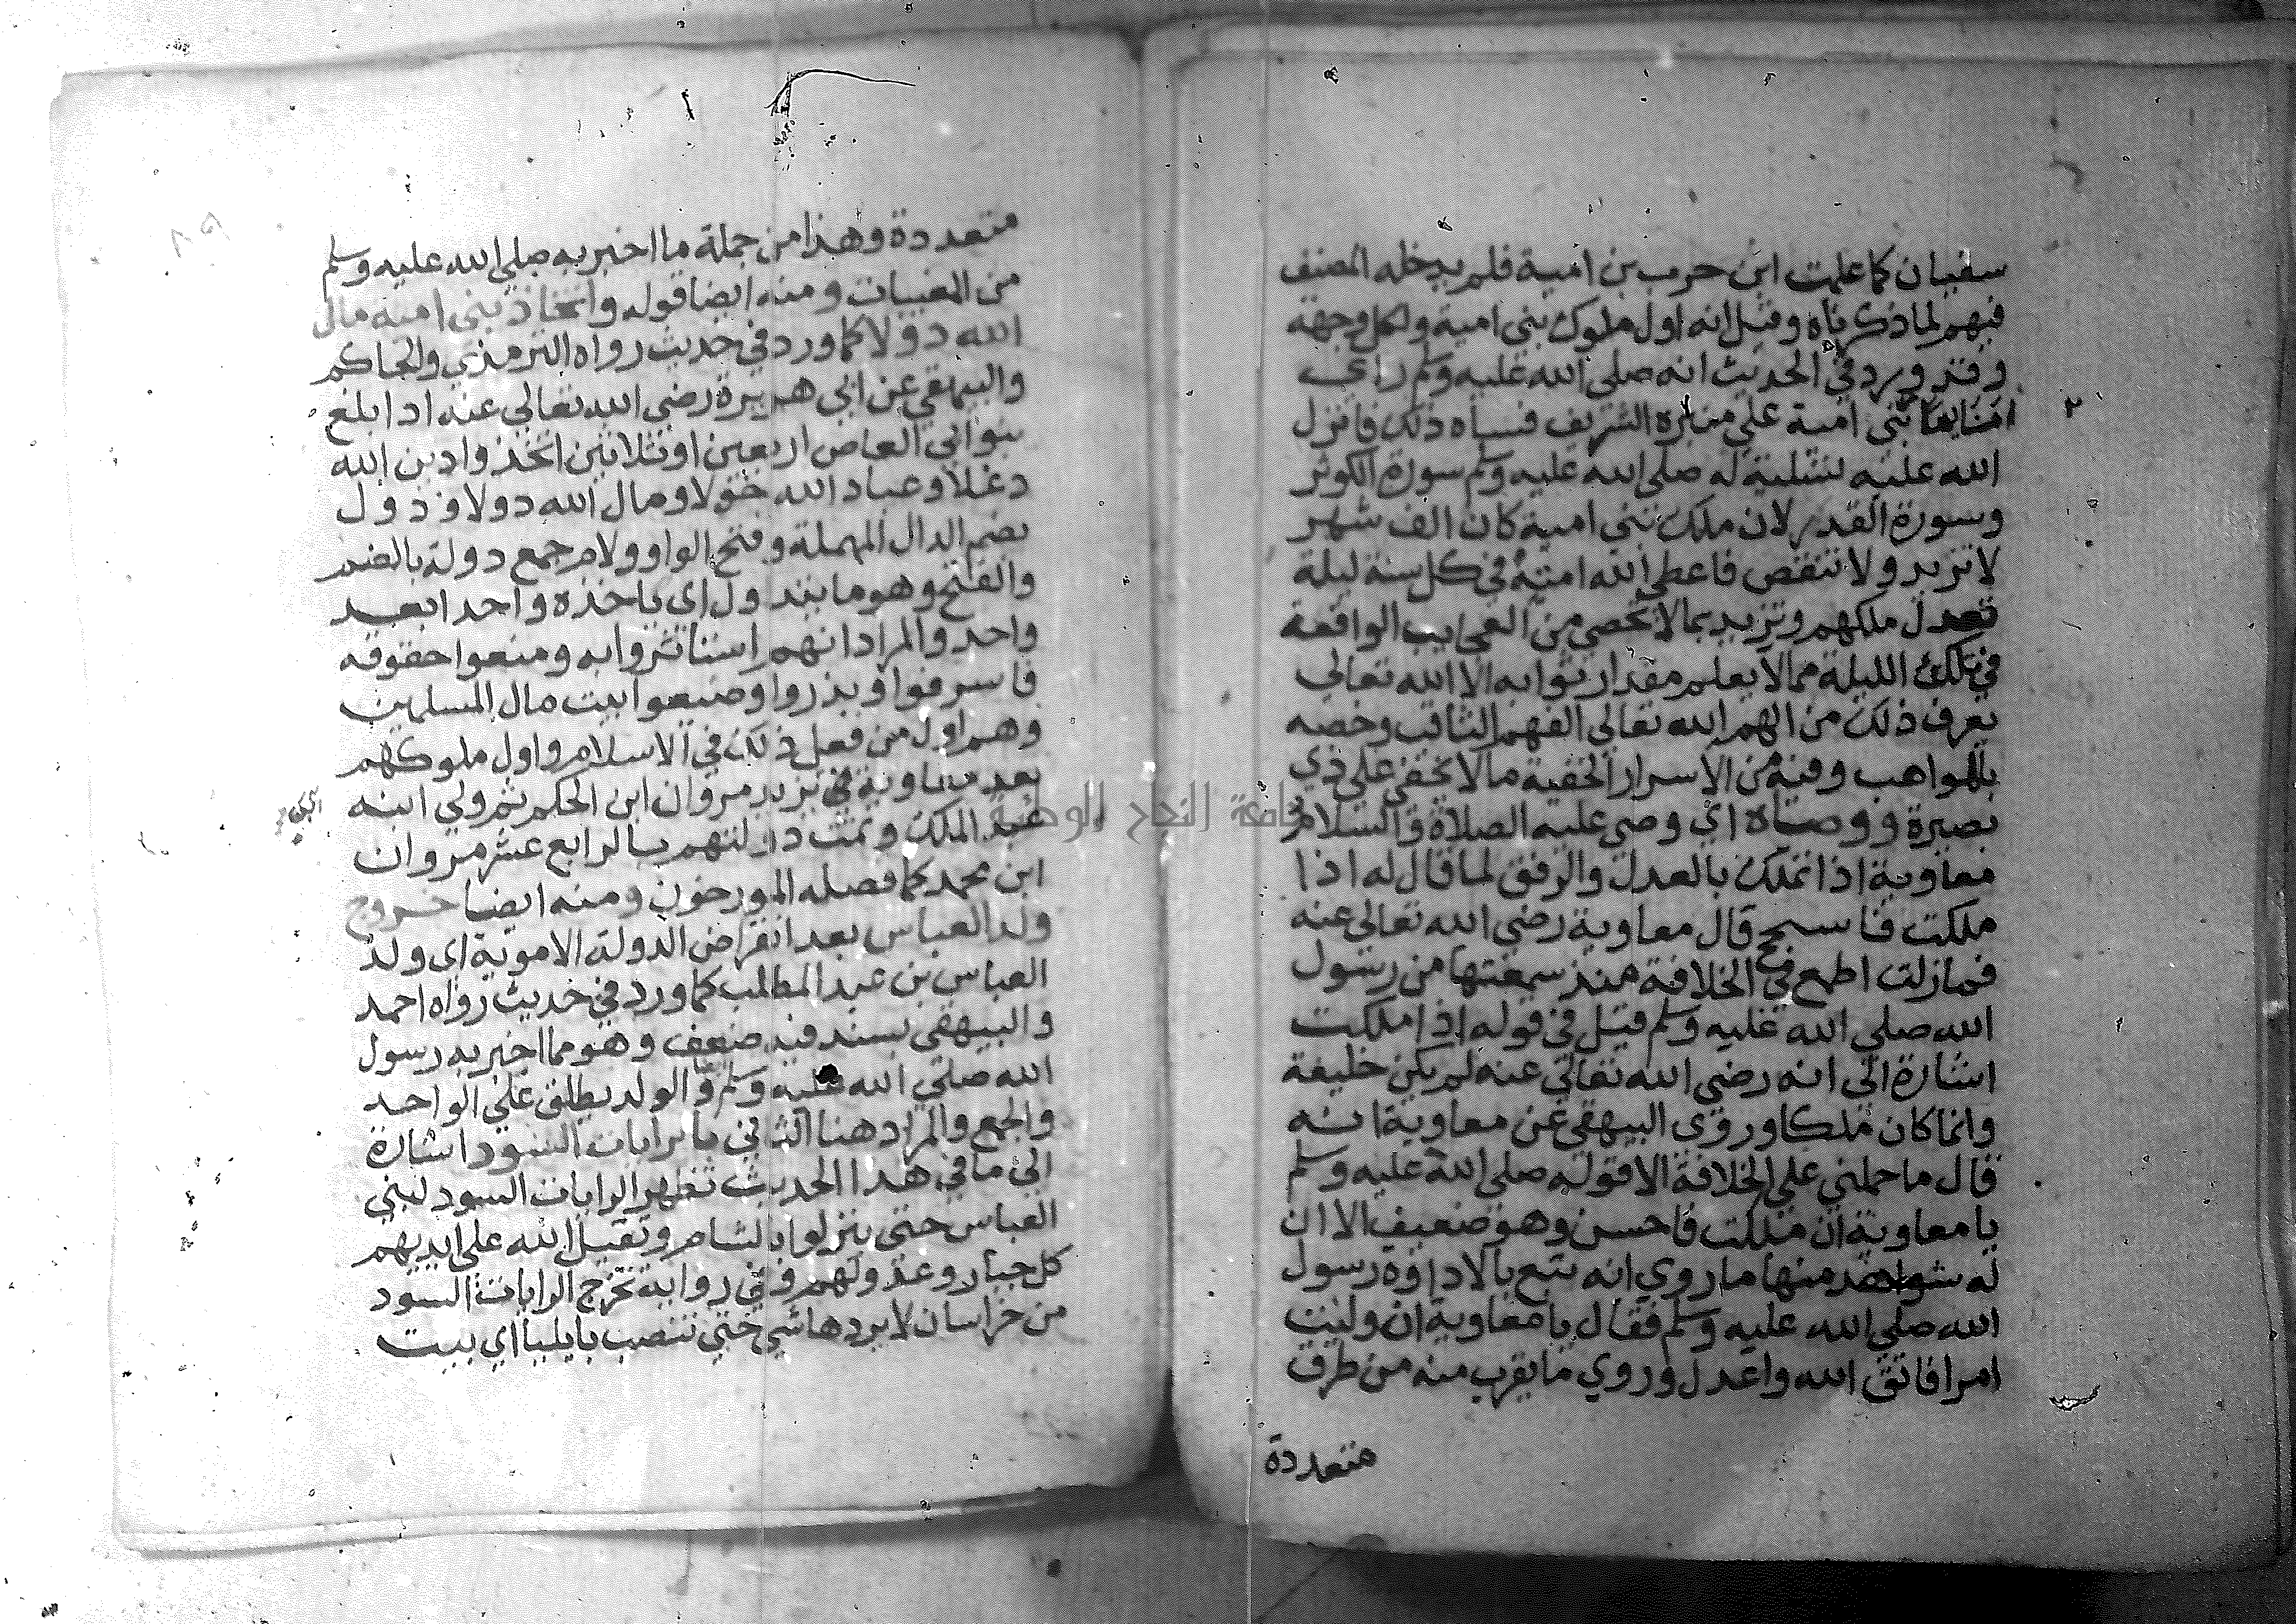 سفيان كما علمت ابن حرب بن امية فلم يدخله المصنف
فيهم لما ذكرناه وقيل انه اول ملوك بني امية ولكل وجهة
وقد ورد في الحديث انه صلى الله عليه وسلم راي
بني امية علي منبره الشريف فساه ذلك فانزل
الله عليه تسلية له صلى الله عليه وسلم سورة الكوثر
وسورة القدر لان ملك بني امية كان الف شهر
لا تزيد ولا تنقص فاعطي الله امته في كل سنة ليلة
تعدل ملكهم وتزيد بما لا تحصى من العجايب الواقعة
في تلك الليلة مما لا يعلم مقدار ثوابه الا الله تعالى
يعرف ذلك من الهم الله تعالى الفهم الثاقب وخصه
بالمواهب وفيه من الاسرار الخفية ما لا يخفى على ذي
بصيرة ووصاه اي وصى عليه الصلاة والسلام
معاوية اذا تملك بالعدل والرفق لما قال له اذا
ملكت فاسجح قال معاوية رضي الله تعالى عنه
فما زلت اطمع في الخلافة منذ سمعتها من رسول
الله صلى الله عليه وسلم قيل في قوله اذا ملكت
اشارة الى انه رضي الله تعالى عنه لم يكن خليفة
وانما كان ملكا وروى البيهقي عن معاوية انه
قال ما حملني على الخلافة الا قوله صلى الله عليه وسلم
يا معاوية ان ملكت فاحسن وهو ضعيف الا ان
له شواهد منها ما روي انه تتبع بالاداوة رسول
الله صلى الله عليه وسلم فقال يا معاوية ان وليت
امرا فاتق الله واعدل وروي ما يقرب منه من طرق
متعددة
متعددة وهذا من جملة ما اخبر به صلى الله عليه وسلم
من المغيبات ومنه ايضا قوله واتخاذ بني امية مال
الله دولا كما ورد في حديث رواه الترمذي والحاكم
والبيهقي عن ابي هريرة رضي الله تعالى عنه اذا بلغ
بنو ابي العاص اربعين او ثلاثين اتخذوا دين الله
دغلا وعباد الله خولا ومال الله دولا ودول
بضم الدال المهملة وفتح الواو ولام جمع دولة بالضم
والفتح وهو ما يتداول اي ياخذه واحد ابعد
واحد والمراد انهم استاثروا به ومنعوا حقوقه
فاسرفوا وبذروا وضيعوا بيت مال المسلمين
وهم اول من فعل ذلك في الاسلام واول ملوكهم
بعد معاوية يزيد مروان ابن الحكم ثم ولي ابنه
عبد الملك وتمت دولتهم بالرابع عشر مروان
ابن محمد كما فصله المورخون ومنه ايضا خروج
ولد العباس بعد انقراض الدولة الاموية اي ولد
العباس بن عبد المطلب كما ورد في حديث رواه احمد
والبيهقي بسند فيه ضعف وهو مما اخبر به رسول
الله صلى الله عليه وسلم والولد يطلق على الواحد
والجمع والمراد هنا الثاني بالرايات السود اشارة
الي ما في هذا الحديث تظهر الرايات السود لبني
العباس حتى ينزلوا بالشام وتقتل الله على ايديهم
كل جبار وعدو لهم وفي رواية تخرج الرايات السود
من خراسان لا يردها شي حتى تنصب بايليا اي بيت
جامعة النجاح الوطنية